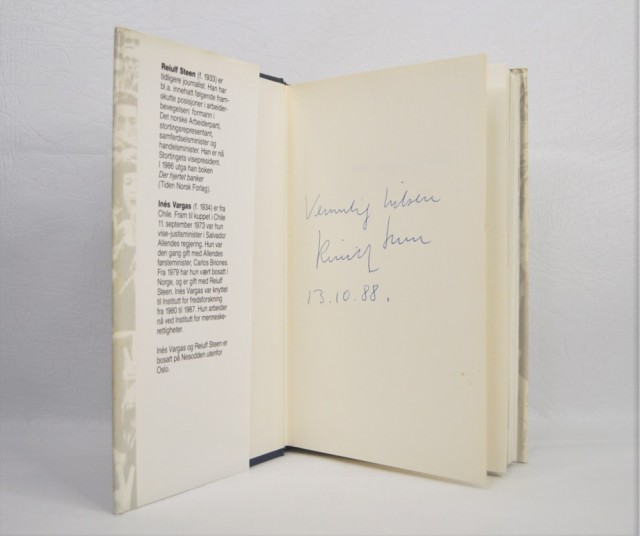 Reiulf Steen (f. 1933) er
tidligere journalist. Han har
bl.a. innehatt følgende fram-
skutte posisjoner i arbeider-
bevegelsen: formann i
Det norske Arbeiderparti,
stortingsrepresentant,
samferdselsminister og
handelsminister. Han er nå
Stortingets visepresident.
I 1986 utga han boken
Der hjertet banker
(Tiden Norsk Forlag).
Inés Vargas (f. 1934) er fra
Chile. Fram til kuppet i Chile
11. september 1973 var hun
vise-justisminister i Salvador
Allendes regjering. Hun var
den gang gift med Allendes
førsteminister, Carlos Briones.
Fra 1979 har hun vært bosatt i
Norge, og er gift med Reiulf
Steen. Inés Vargas var knyttet
til Institutt for fredsforskning
fra 1980 til 1987. Hun arbeider
nå ved Institutt for menneske-
rettigheter.
Inés Vargas og Reiulf Steen er
bosatt på Nesodden utenfor
Oslo.
Vennlig hilsen
Reiulf Steen
13.10.88.